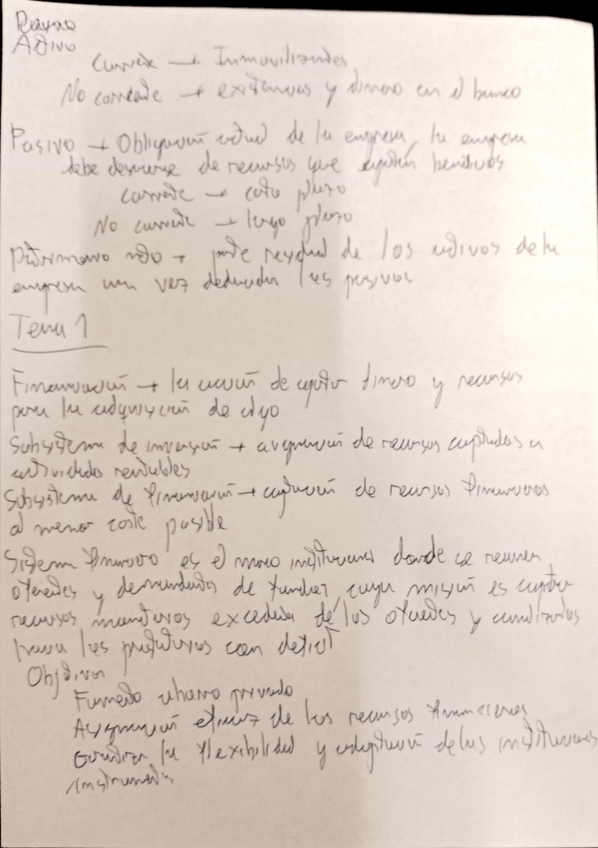 Repaso
Activo
Corriente → Inmovilizados
No corriente → existencias y dinero en el banco
Pasivo → Obligación actual de la empresa, la empresa
debe desprenderse de recursos que beneficios
Corriente → corto plazo
No corriente → largo plazo
Patrimonio neto → parte residual de los activos de la
empresa una vez deducidos los pasivos
Tema 1
Financiación → la acción de captar dinero y recursos
para la adquisición de algo
Subsistema de inversión → asignación de recursos captados a
actividades rentables
Subsistema de financiación → captación de recursos financieros
al menor coste posible
Sistema financiero es el marco institucional donde se reunen
oferentes y demandantes de fondos, cuya misión es captar
recursos excedentes de los oferentes y canalizarlos
hacia los con deficit
Objetivos
Fomento ahorro privado
Asignación eficaz de los recursos financieros
Garantizar la flexibilidad y adaptación de las instituciones
instrumentos